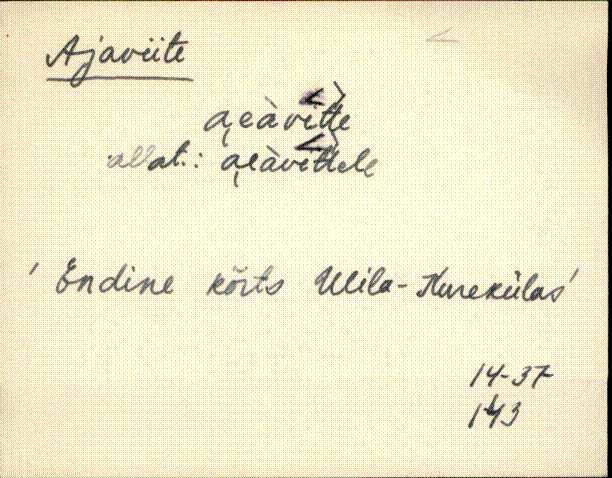 Ajaviite
a̯eàvitte
allat.: a̯eàvittele
' Endine kõrts Ulila-Kurekülas'
14-37
143